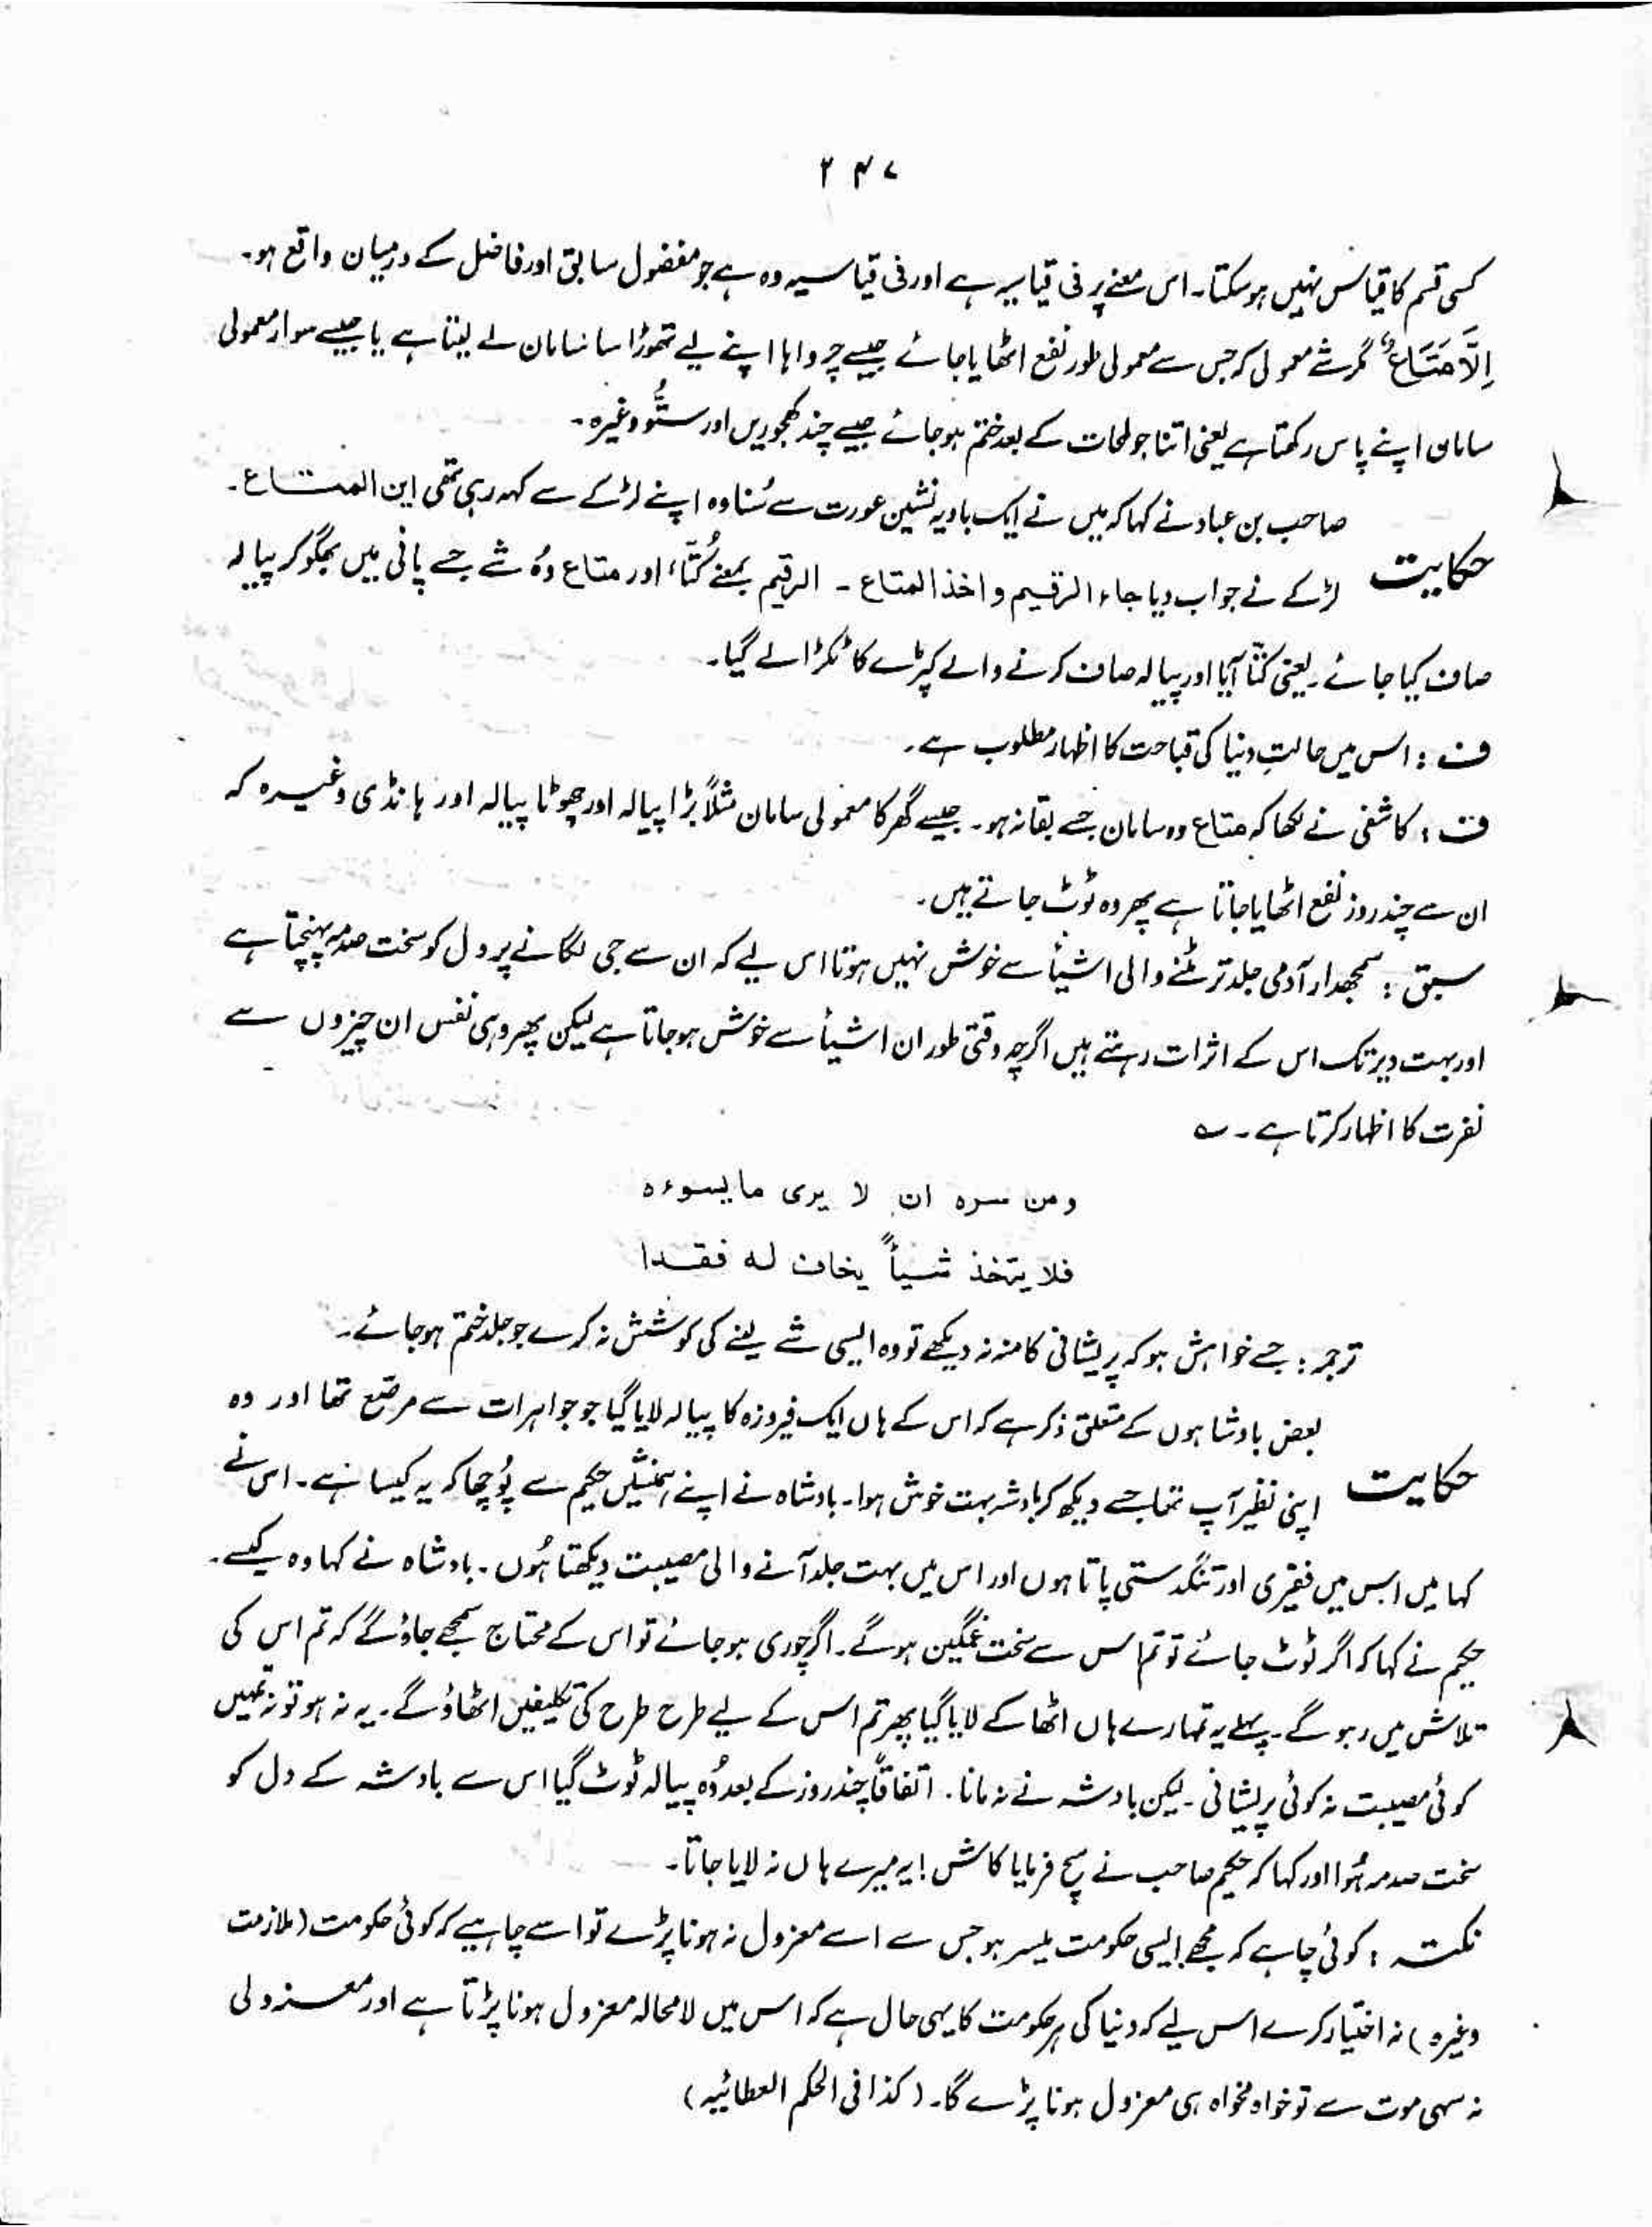 ۲۴۷
کسی قسم کا قیاس نہیں ہو سکتا۔ اس معنے پر فی قیاسیہ ہے اور فی قیاسیہ وہ ہے جو مفضول سابق اور فاضل کے درمیان واقع ہو۔
اِلَّا مَتَاعٌ مگر شے معمولی کہ جس سے معمولی طور نفع اٹھایا جائے جیسے چرواہا اپنے لیے تھوڑا سا سامان لے لیتا ہے یا جیسے سوار معمولی
سامان اپنے پاس رکھتا ہے یعنی اتنا جو لمحات کے بعد ختم ہو جائے جیسے چند کھجوریں اور ستُّو وغیرہ۔
صاحب بن عباد نے کہا کہ میں نے ایک بادیہ نشین عورت سے سُنا وہ اپنے لڑکے سے کہہ رہی تھی این المتاع۔
حکایت لڑکے نے جواب دیا جاء الرقیم و اخذ المتاع ۔ الرقیم بمعنے کُتّا، اور متاع وہُ شے جسے پانی میں بھگو کر پیالہ
صاف کیا جائے۔ یعنی کتّا آیا اور پیالہ صاف کرنے والے کپڑے کا ٹکڑا لے گیا۔
ف : اس میں حالتِ دنیا کی قباحت کا اظہار مطلوب ہے۔
ف : کاشفی نے لکھا کہ متاع وہ سامان جسے بقا نہ ہو۔ جیسے گھر کا معمولی سامان مثلاً بڑا پیالہ اور چھوٹا پیالہ اور ہانڈی وغیرہ کہ
ان سے چند روز نفع اٹھایا جاتا ہے پھر وہ ٹوٹ جاتے ہیں۔
سبق : سمجھدار آدمی جلد تر مٹنے والی اشیأ سے خوش نہیں ہوتا اس لیے کہ ان سے جی لگانے پر دل کو سخت صدمہ پہنچتا ہے
اور بہت دیر تک اس کے اثرات رہتے ہیں اگرچہ وقتی طور ان اشیأ سے خوش ہو جاتا ہے لیکن پھر وہی نفس ان چیزوں سے
نفرت کا اظہار کرتا ہے۔ ؎
ومن سره ان لا یری ما یسوءه
فلا یتخذ شیأً یخاف له فقدا
ترجمہ : جسے خواہش ہو کہ پریشانی کا منہ نہ دیکھے تو وہ ایسی شے لینے کی کوشش نہ کرے جو جلد ختم ہو جائے۔
بعض بادشاہوں کے متعلق ذکر ہے کہ اس کے ہاں ایک فیروزہ کا پیالہ لایا گیا جو جواہرات سے مرصّع تھا اور وہ
حکایت اپنی نظیر آپ تھا جسے دیکھ کر بادشہ بہت خوش ہوا۔ بادشاہ نے اپنے ہمنشیں حکیم سے پُوچھا کہ یہ کیسا ہے۔ اس نے
کہا میں اس میں فقیری اور تنگدستی پاتا ہوں اور اس میں بہت جلد آنے والی مصیبت دیکھتا ہُوں۔ بادشاہ نے کہا وہ کیسے۔
حکیم نے کہا کہ اگر ٹوٹ جائے تو تم اس سے سخت غمگین ہو گے۔ اگر چوری ہو جائے تو اس کے محتاج سمجھے جاؤ گے کہ تم اس کی
تلاش میں رہو گے۔ پہلے یہ تمہارے ہاں اٹھا کے لایا گیا پھر تم اس کے لیے طرح طرح کی تکلیفیں اٹھاؤ گے۔ یہ نہ ہو تو نہ تمہیں
کوئی مصیبت نہ کوئی پریشانی۔ لیکن بادشہ نے نہ مانا۔ اتفاقاً چند روز کے بعد وُہ پیالہ ٹوٹ گیا اس سے بادشہ کے دل کو
سخت صدمہ ہُوا اور کہا کہ حکیم صاحب نے سچ فرمایا کاش! یہ میرے ہاں نہ لایا جاتا۔
نکتہ : کوئی چاہے کہ مجھے ایسی حکومت میسر ہو جس سے اسے معزول نہ ہونا پڑے تو اسے چاہیے کہ کوئی حکومت (ملازمت
وغیرہ) نہ اختیار کرے اس لیے کہ دنیا کی ہر حکومت کا یہی حال ہے کہ اس میں لامحالہ معزول ہونا پڑتا ہے اور معزولی
نہ سہی موت سے تو خواہ مخواہ ہی معزول ہونا پڑے گا۔ (کذا فی الحکم العطائیہ)